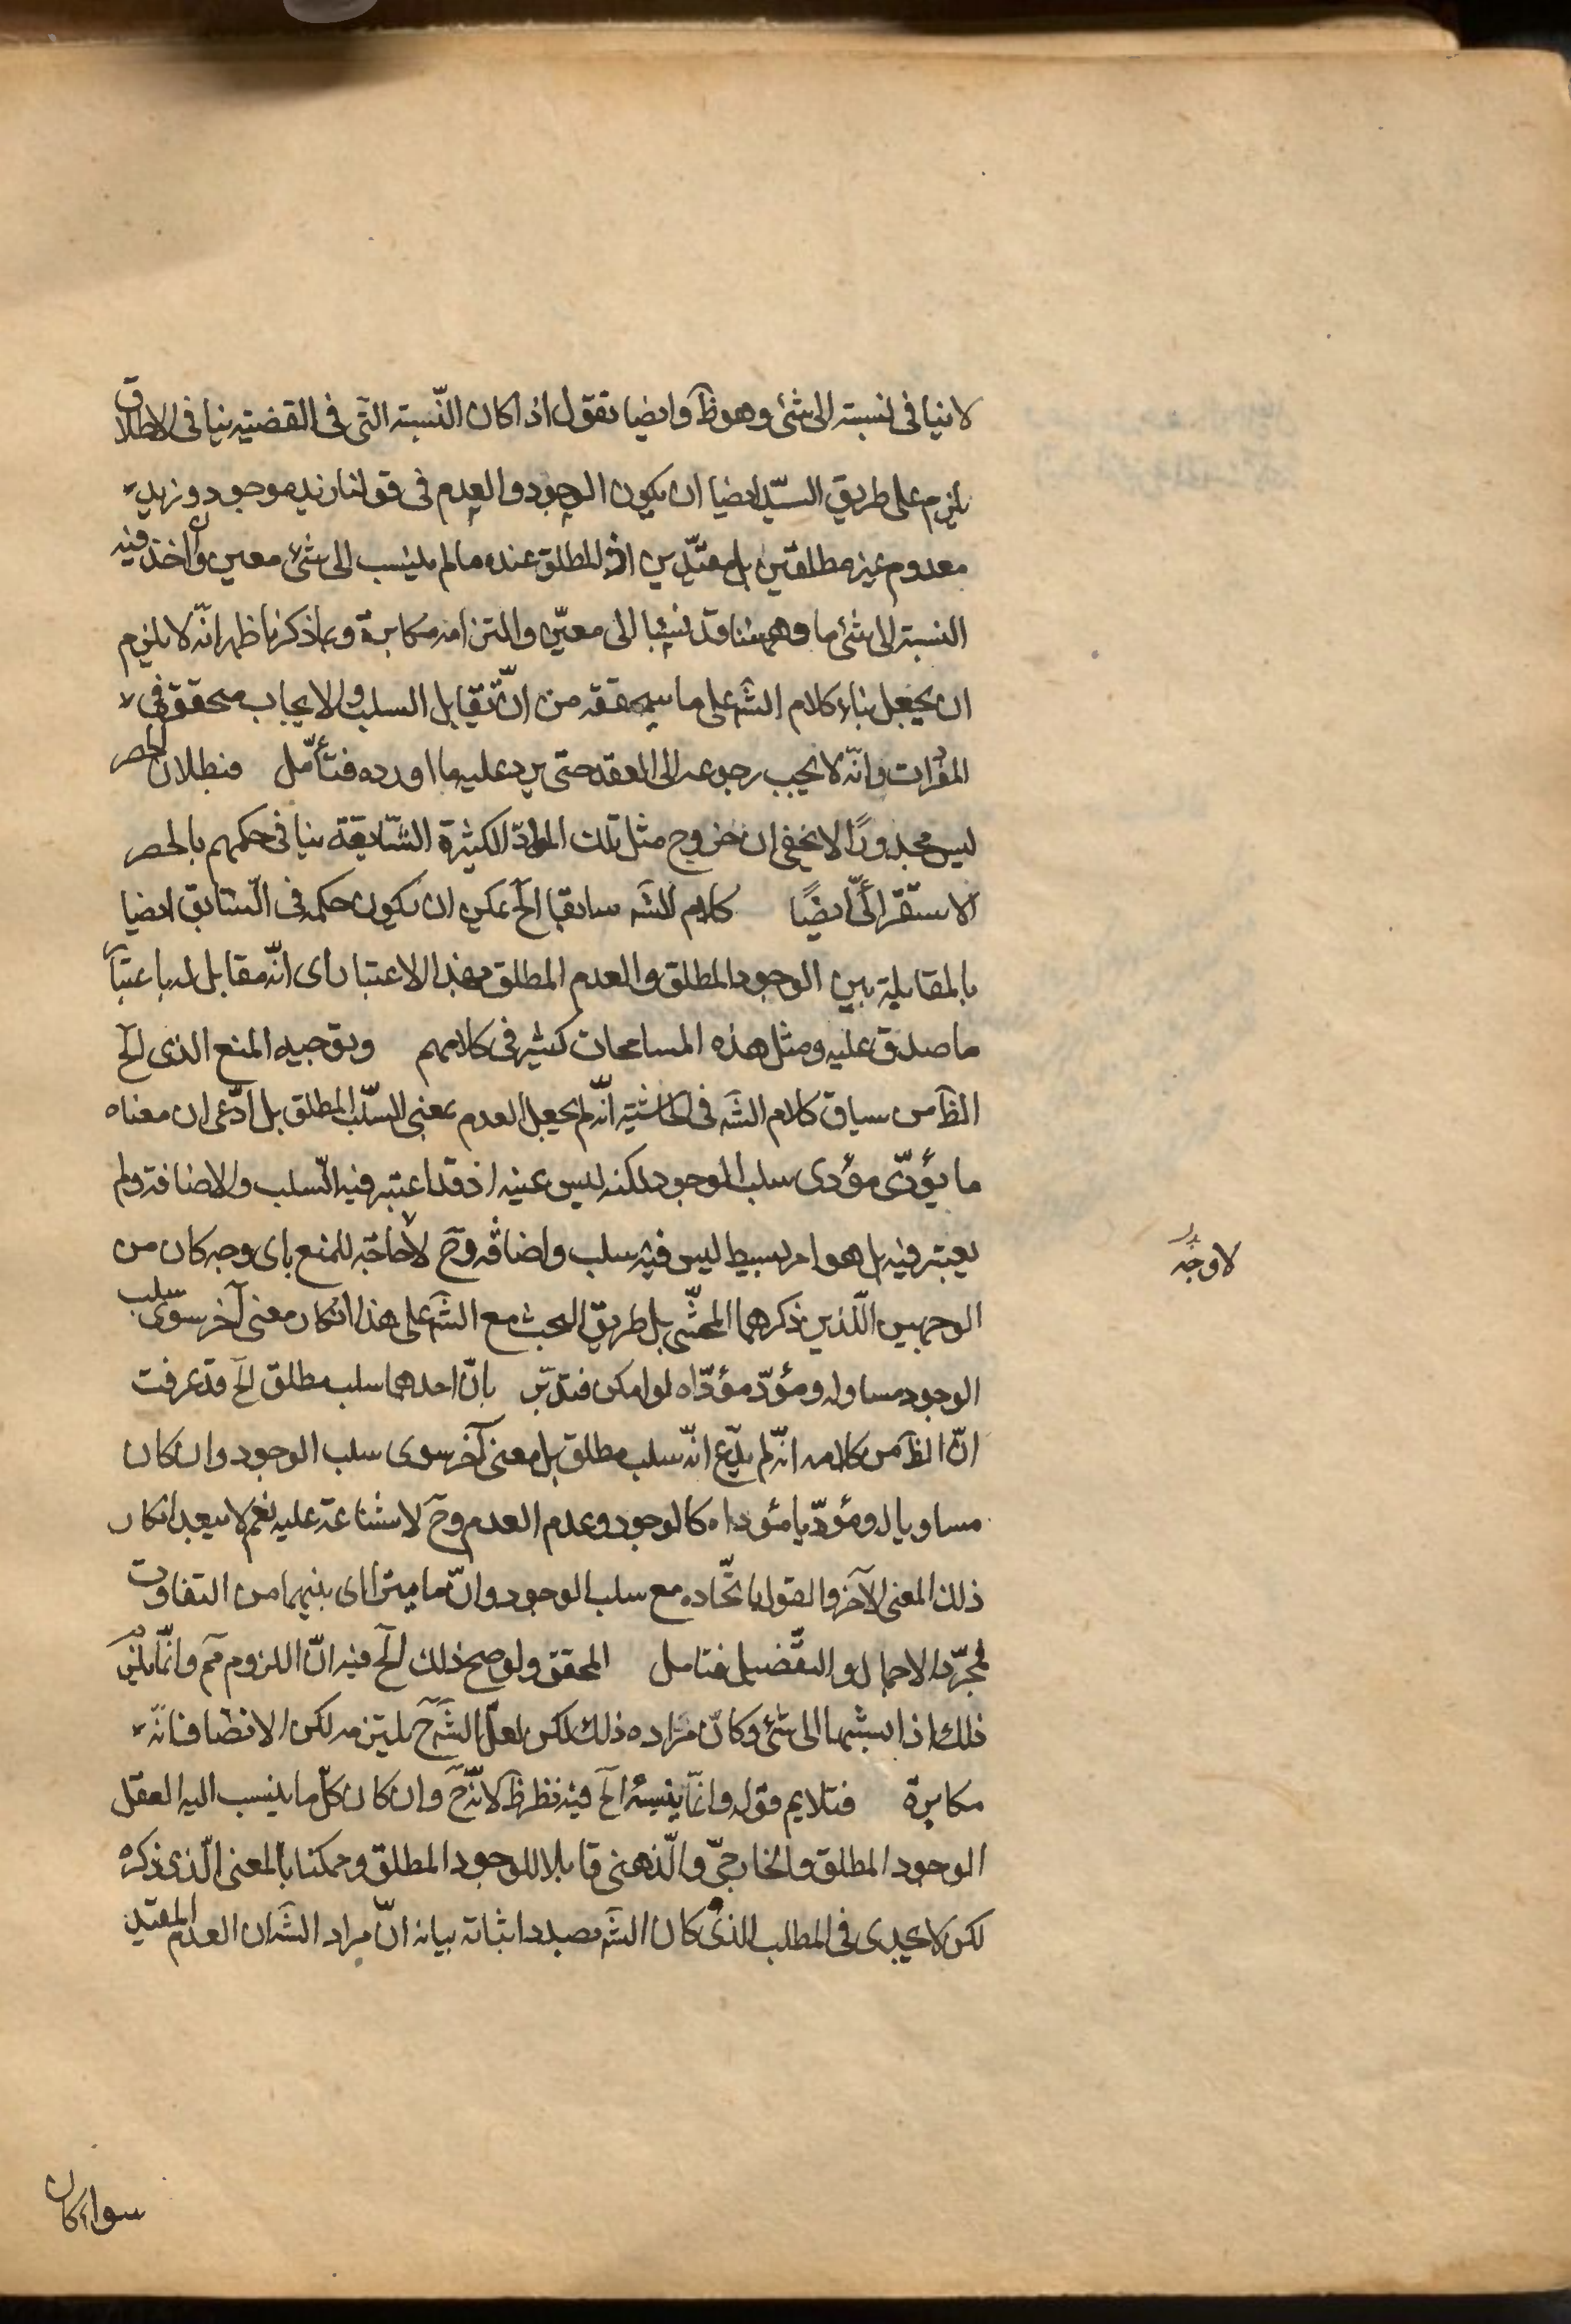 لا ينافى نسبته الى شئ وهو ظ وايضا نقول اذا كان النّسبة التّى فى القضيّة ينافى الاطلاق
يلزم على طريق السّيّد ايضا ان يكون الوجود والعدم فى قولنا زيد موجود وزيد
معدوم غير مطلقين بل مقيّدين اذ المطلق عنده ما لم ينسب الى شئ معين وان اخذ فيه
النسبة الى شئ ما وههنا قد نسبا الى معيّن والتزامه مكابرة وبما ذكرنا ظهر انّه لا يلزم
ان يجعل بناء كلام الشه على ما سيحققه من انّ تقابل السلب والايجاب متحقق فى
المفردات وانّه لا يجب رجوعه الى العقد حتى يرد عليه ما اورده فتأمّل فبطلان الحصر
ليس محذورًا لا يخفى ان خروج مثل تلك الموادّ الكثيرة الشّايعة ينافى حكمهم بالحصر
الاستقرائىّ ايضًا كلام للشه سابقا الخ يمكن ان يكون حكمه فى السّابق ايضا
بالمقابلة بين الوجود المطلق والعدم المطلق بهذا الاعتبار اى انّه مقابل له باعتبار
ما صدق عليه ومثل هذه المسامحات كثير فى كلامهم وبتوجيه المنع الذى الخ
الظ من سياق كلام الشه فى الحاشية انّه لم يجعل العدم بمعنى السّلب المطلق بل ادّعى ان معناه
ما يؤدّى مؤدى سلب الوجود لكنه ليس عينه اذ قد اعتبر فيه السّلب والاضافة ولم
يعتبر فيه بل هو امر بسيط ليس فيه سلب واضافة وح لا حاجة للمنع باى وجه كان من
لا وجه
الوجهين اللّذين ذكرهما المحشّى بل طريق البحث مع الشه على هذا انكار معنى آخر سوى سلب
الوجود مساو له ومؤدّ مؤدّاه لو امكن فتدبّر بانّ احدهما سلب مطلق الخ قد عرفت
انّ الظ من كلامه انّه لم يدّع انّه سلب مطلق بل معنى آخر سوى سلب الوجود وان كان
مساويا له ومؤدّيا مؤداه كالوجود وعدم العدم وح لا شناعة عليه نعم لا يبعد انكار
ذلك المعنى الآخر والقول باتّحاده مع سلب الوجود وانّ ما يتراءى بينهما من التفاوت
فمجرّد الاجمال والتفصيل فتامل المحقق ولو صح ذلك الخ فيه انّ اللزوم مم وانّما يلزم
ذلك اذا نسبهما الى شئ وكان مراده ذلك لكن لعلّ الشه ح يلتزمه لكن الانصاف انّه
مكابرة فتلايم قوله وانّما ينسبه الخ فيه نظر ظ لانّه ح وان كان كلّ ما ينسب اليه العقل
الوجود المطلق والخارجىّ والّذهنى قابلا للوجود المطلق وممكنا بالمعنى الّذى ذكره
لكن لا يجدى فى المطلب الذى كان الشه بصدد اثباته بيانه انّ مراد الشه ان العدم المقيد
سواء كان